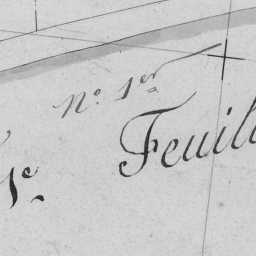 N° 1er
1e Feuil